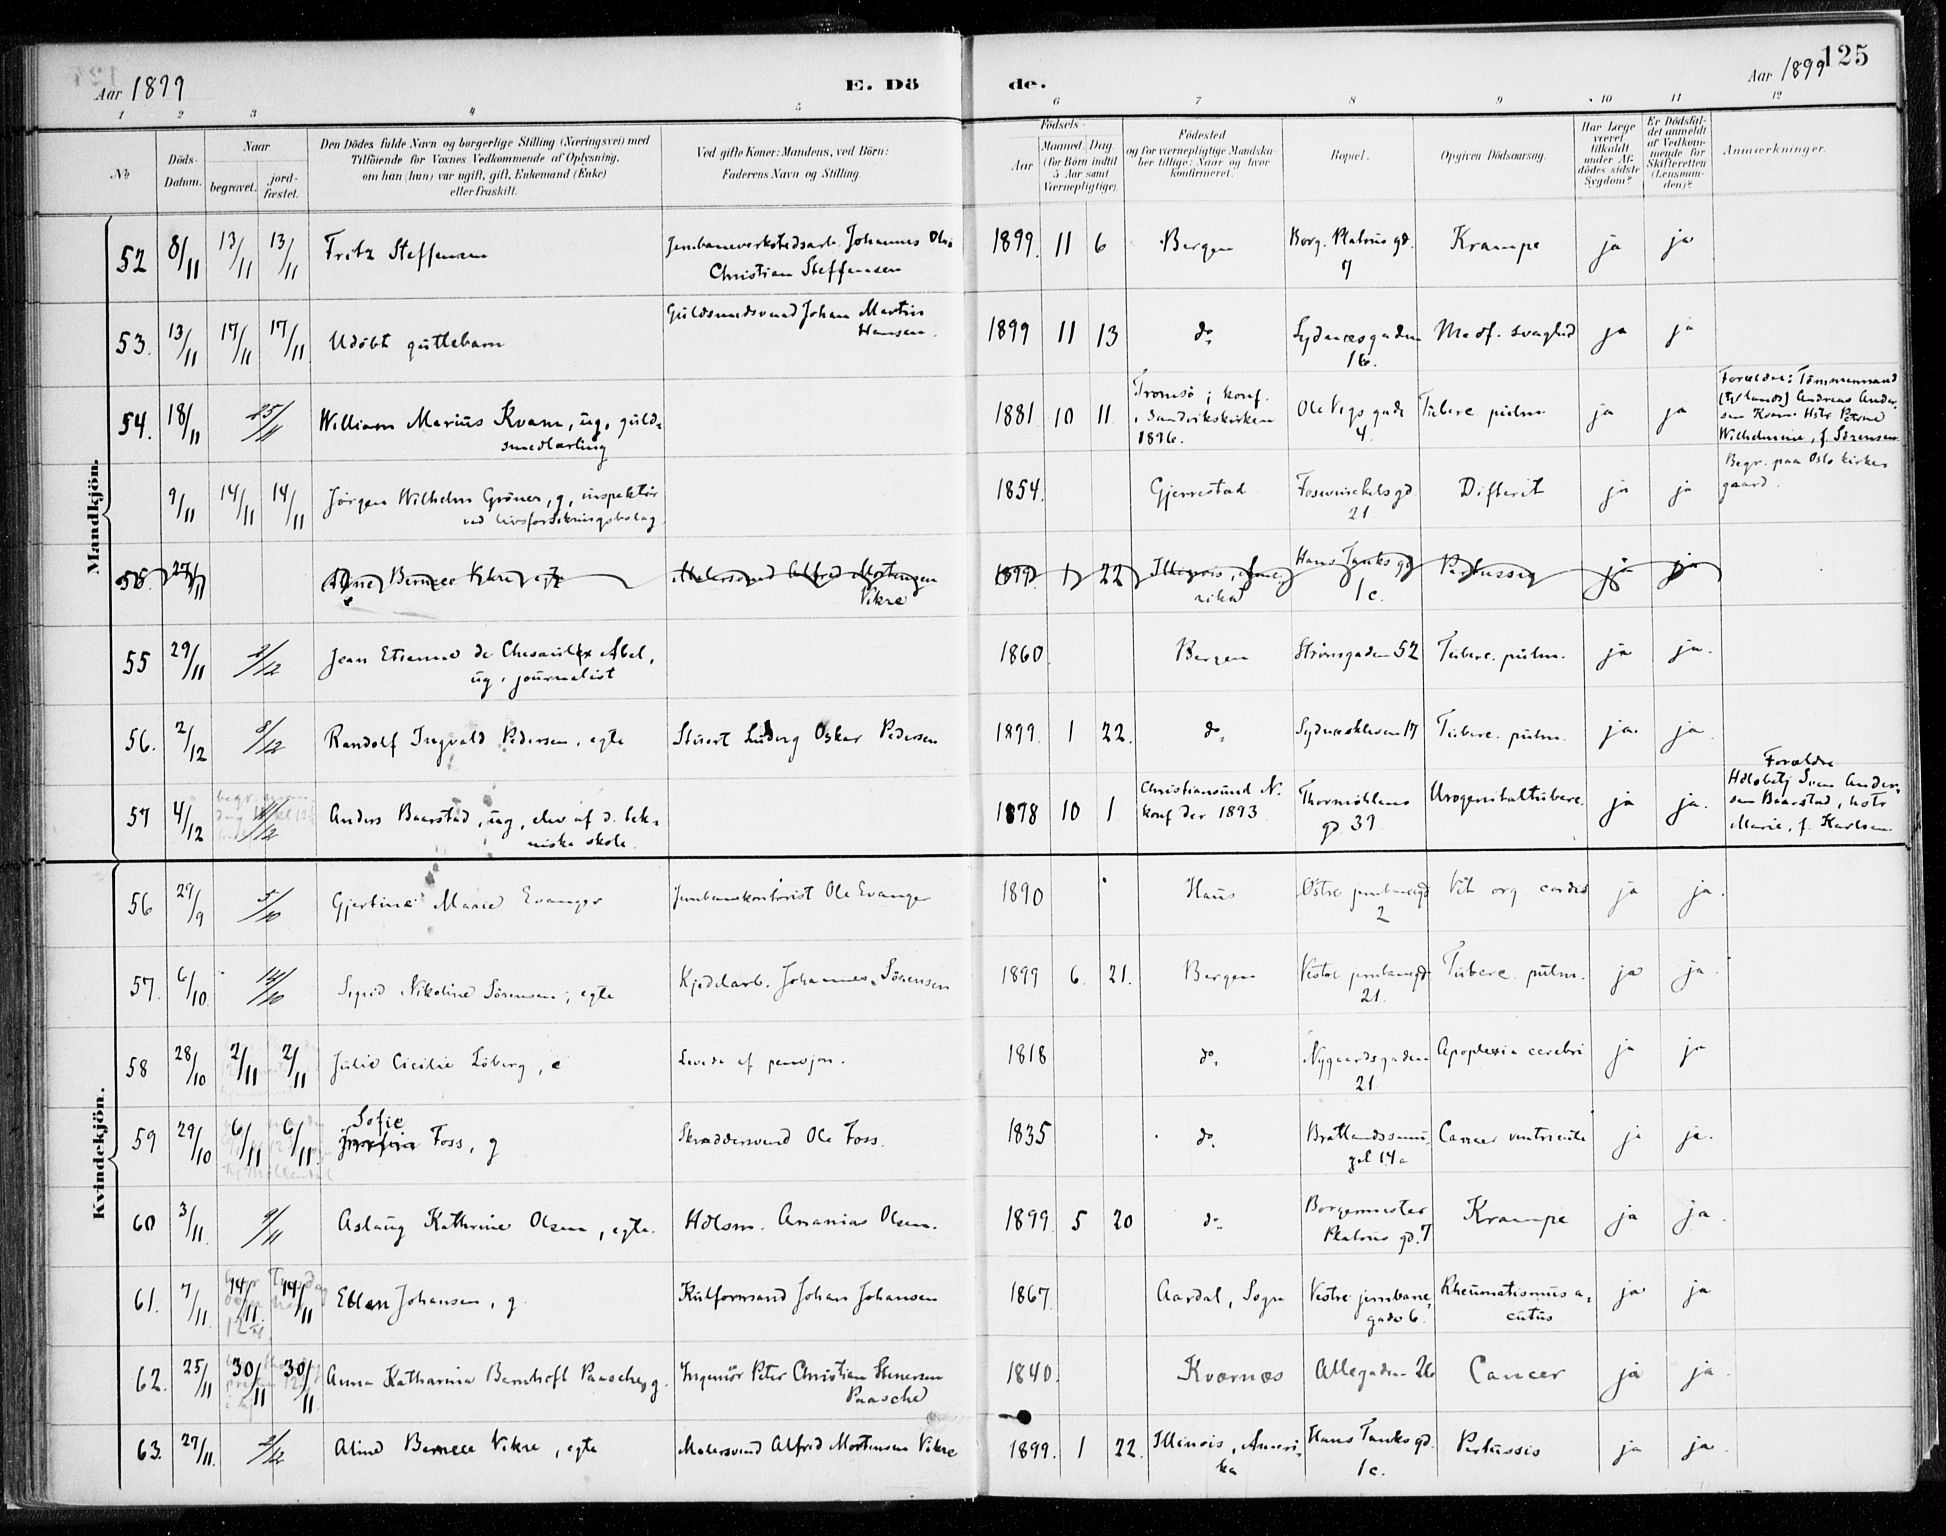 Aar 1899
E. Dö
de.
Aar 1899
125
1 2 3 4 5 6 7 8 9 10 11 12
No
Döds-Datum.
Naar
begravet.
jord-fæstet.
Den Dödes fulde Navn og borgerlige Stilling (Næringsvei) med
Tilföiende for Voxnes Vedkommende af Oplysning,
om han (hun) var ugift, gift, Enkemand (Enke)
eller fraskilt.
Ved gifte Koner: Mandens, ved Börn:
Faderens Navn og Stilling.
Födsels
Aar
Maaned. Dag.
(for Börn indtil
5 Aar samt
Værnepligtige).
Födested
og for værnepligtige Mandska-
ber tillige: Naar og hvor
konfirmeret.
Bopæl.
Opgiven Dödsaarsag.
Har Læge
været
tilkaldt
under Af-
dödes sidste
Sygdom?
Er Dödsfal-
det anmeldt
af Vedkom-
mende for
Skifteretten
(Lensman-
den)?
Anmærkninger.
Mandkjön.
52 8/11 13/11 13/11 Fritz Steffensen Jernbaneverkstedsarb. Johannes
Christian Steffensen 1899. 11 6 Bergen Borg. Platous gd. 7 Krampe ja ja
53. 13/11 17/11 17/11 Udöbt guttebarn Guldsmedsvend Johan Martin
Hansen. 1899 11 13 do. Sydnæsgaden 16. Medf. svaghed ja ja
54. 18/11 25/11 William Marius Kvam, ug, guld-
smedlærling 1881 10 11 Tromsö; konf.
i Sandvikskirken
1896. Ole Vigs gade 4. Tuberc pulm ja ja
Forældre: Tömmermand
Andreas Ander-
sen Kvam Hstr Petrine
Wilhelmine, f. Sörensen
9/11 14/11 14/11 Jörgen Wilhelm Gröner, g, inspektör
ved livsforsikringsbolag. 1854. Gjerrestad Fosswinckels gd 21. Difterit ja ja
Begr. paa Oslo kirke-
gaard.
55. 27/11 Bernece Vikre, egte Malersvend Alfred Mortensen
Vikre 1899 1 22 Illinois, Ame-
rika Hans Tanks gd 1c. Pertussis ja ja
55 29/11 2/12 Jean Etienne de Abel,
ug, journalist 1860. Bergen Strömgaden 52 Tuberc. pulm. ja ja.
56. 2/12 8/12 Randolf Ingvald Pedersen, egte Stuert Ludvig Oskar Pedersen 1899. 1 22. do. Sydneskleven 17 Tuberc. pulm. ja. ja.
57 4/12 11/12 Anders Baarstad, ug, elev af d. tek-
niske skole. 1878 10 1 Christiansund N.
konf der 1893 Thormöhlens
gd 39. Urogenitaltuberc. ja ja.
Forældre
Sven Ander-
sen Baarstad, hstr
Marie, f. Karlsen
Kvindekjön.
56 29/9 5/10 Gjertine Marie Evanger Jernbanekontorist Ole Evanger 1890 Haus Östre jernbanegd
2 Vit. org. cordis ja ja.
57. 6/10. 14/10 Sigrid Nikoline Sörensen, egte Kjedelarb. Johannes Sörensen 1899 6. 21. Bergen Vestre jernbanegd
21. Tuberc. pulm. ja ja.
58 28/10 2/11 2/11 Julie Cicilie Löberg, e Levede af pension. 1818 do. Nygaardsgaden
21. Apoplexia cerebri ja ja
59 29/10 6/11 6/11. Sofie
Foss, g Skræddersvend Ole Foss. 1835 do. Bratlandssmu-
get 14a Cancer ventricule ja ja.
60 3/11. 9/11 Aslaug Kathrine Olsen, egte. Hdlsm. Ananias Olsen. 1899. 5 20 do. Borgermester
Platous gd. 7 Krampe ja ja.
61. 7/11. 14/11 14/11 Ellen Johansen, g. Kulformand Johan Johansen 1867. Aardal, Sogn Vestre jernbane-
gade 6. Rheumatismus a-
cutus ja ja
62. 25/11 30/11 30/11. Anna Katharina Bernhoft Paasche, g. Ingeniör Peter Christian Stenersen
Paasche 1840. Kvernæs Allegaden 26 Cancer ja ja.
63. 27/11. 2/12 Aline Bernece Vikre, egte Malersvend Alfred Mortensen Vikre 1899. 1 22. Illinois, Ameri-
ka Hans Tanks gd.
1c. Pertussis ja ja.